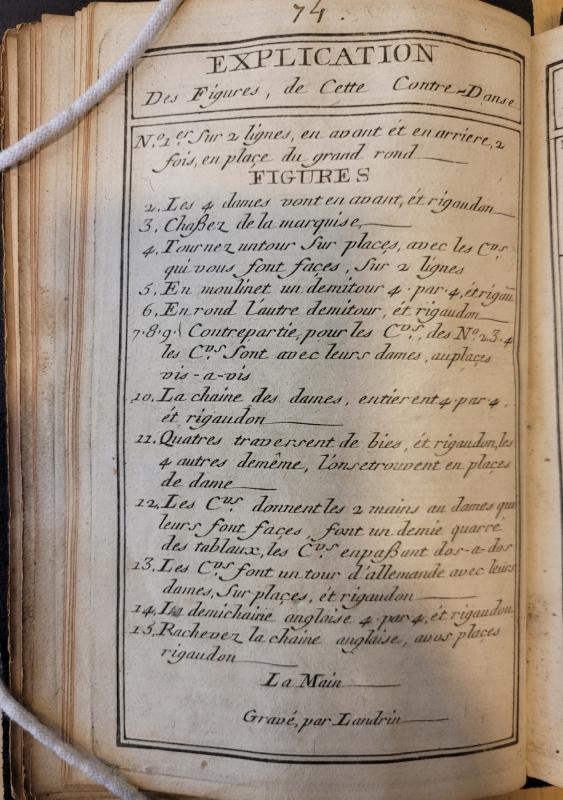 74.
EXPLICATION
Des Figures, de Cette Contre-Danse
N.º 1.er Sur 2 lignes, en avant ét en arriere, 2
fois, en plaçe du grand rond
FIGURES
2. Les 4 dames vont en avant, ét rigaudon
3. Chaßez de la marquise,
4. Tournez untour Sur plaçes, avec les C.vs
qui vous font façes, Sur 2 lignes
5. En moulinet un demitour 4. par 4, ét rigau
6. En rond l'autre demitour, ét rigaudon
7.8.9. Contrepartie, pour les C.vs, des N.º 2.3.4
les C.vs Sont avec leurs dames, auplaçes
vis-a-vis
10. La chaine des dames, entiérent 4 par 4.
ét rigaudon
11. Quatres traversent de bies, ét rigaudon, les
4 autres demême, l'onsetrouvent en plaçes
de dame
12. Les C.vs donnent les 2 mains au dames qui
leurs font façes, font un demie quarré
des tablaux, les C.vs enpaßant dos-a-dos
13. Les C.vs font un tour d'allemande avec leurs
dames, Sur plaçes, ét rigaudon
14. La demichaine anglaise 4 par 4, ét rigaudon
15. Rachevez la chaine anglaise, avos plaçes
rigaudon
La Main
Gravé, par Landrin